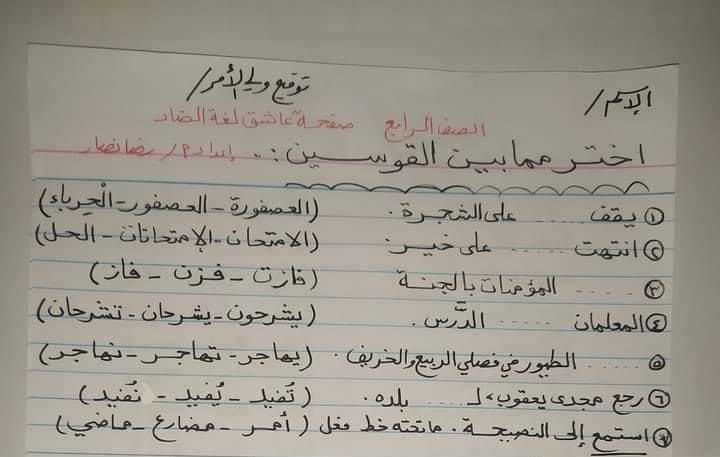 الإسم/ توقيع ولي الأمر/
الصف الرابع صفحة عاشق لغة الضاد
اختر مما بين القوسين :. إعداد م/ رضا نصار
① يقف ..... على الشجرة . (العصفورة - العصفور - الْحِرباء)
② انتهت ..... على خير . (الامتحان - الإمتحانات - الحل)
③ ..... المؤمنات بالجنة (فازت - فزن - فاز)
④ المعلمان ..... الدَّرس . (يشرحون - يشرحان - تشرحان)
⑤ ..... الطيور في فصلي الربيع والخريف . (يهاجر - تهاجر - نهاجر)
⑥ رجع مجدى يعقوب، لـ ..... بلده . (تُفيد - يُفيد - نُفيد)
⑦ استمع إلى النصيحة . ما تحته خط فعل (أمر - مضارع - ماضي)